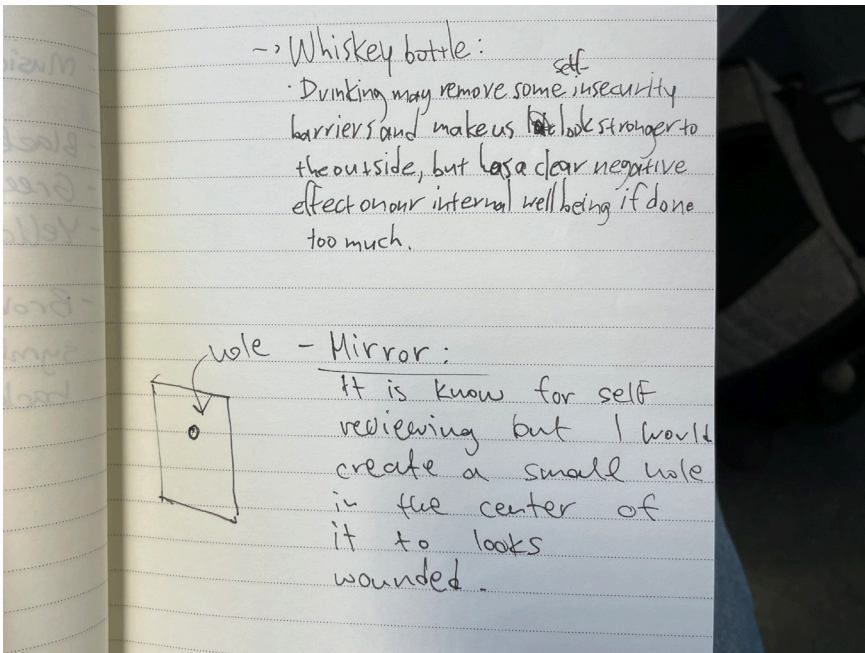 -> Whiskey bottle:
· Drinking may remove some self-insecurity
barriers and make us look stronger to
the outside, but has a clear negative
effect on our internal well being if done
too much.
hole - Mirror:
It is know for self
reviewing but I would
create a small hole
in the center of
it to looks
wounded.